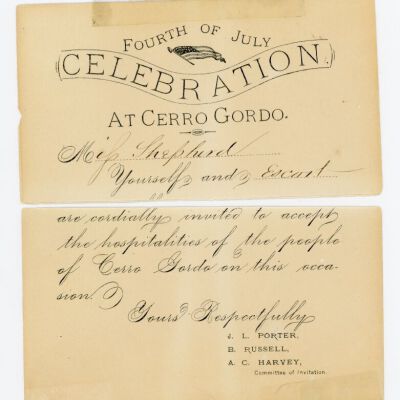 FOURTH OF JULY
CELEBRATION.
AT CERRO GORDO.
Miss Shepherd
Yourself and Escort
are cordially invited to accept
the hospitalities of the people
of Cerro Gordo on this occa-
sion.
Yours Respectfully
J. L. PORTER,
B. RUSSELL,
A. C. HARVEY,
Committee of Invitation.